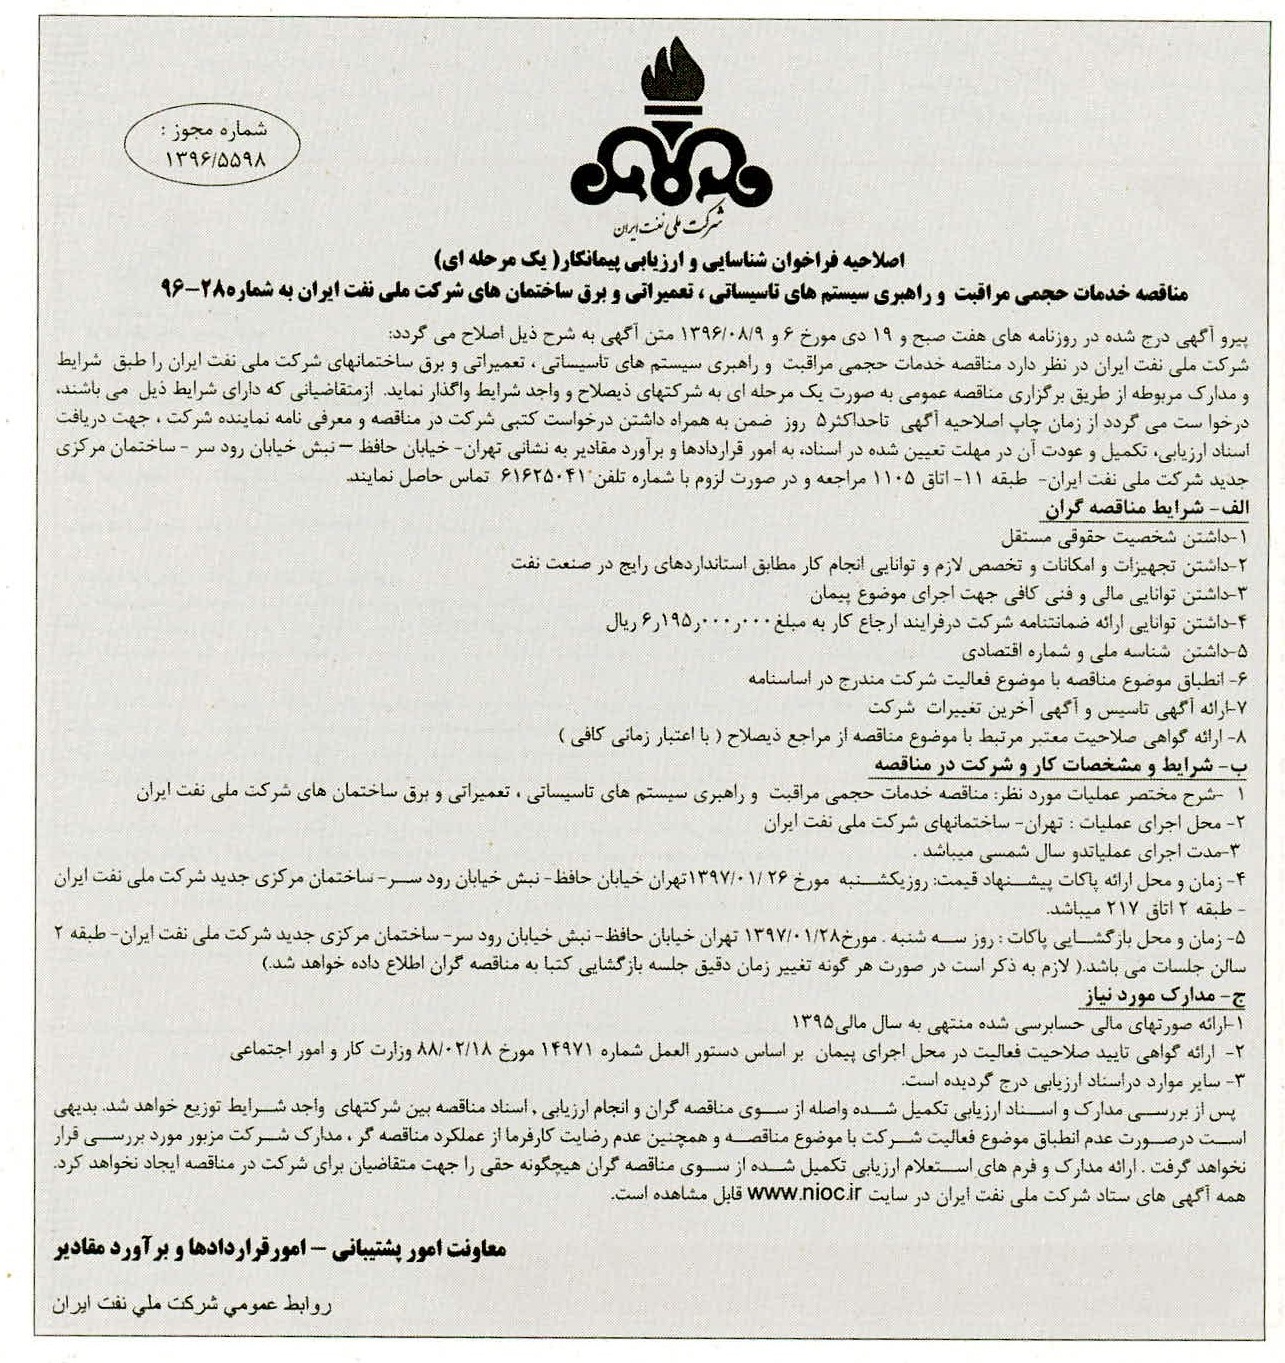 شماره مجوز :
۱۳۹۶/۵۵۹۸
شرکت ملی نفت ایران
اصلاحیه فراخوان شناسایی و ارزیابی پیمانکار( یک مرحله ای)
مناقصه خدمات حجمی مراقبت و راهبری سیستم های تاسیساتی ، تعمیراتی و برق ساختمان های شرکت ملی نفت ایران به شماره۲۸-۹۶
پیرو آگهی درج شده در روزنامه های هفت صبح و ۱۹ دی مورخ ۶ و ۱۳۹۶/۰۸/۹ متن آگهی به شرح ذیل اصلاح می گردد:
شرکت ملی نفت ایران در نظر دارد مناقصه خدمات حجمی مراقبت و راهبری سیستم های تاسیساتی ، تعمیراتی و برق ساختمانهای شرکت ملی نفت ایران را طبق شرایط
و مدارک مربوطه از طریق برگزاری مناقصه عمومی به صورت یک مرحله ای به شرکتهای ذیصلاح و واجد شرایط واگذار نماید. ازمتقاضیانی که دارای شرایط ذیل می باشند،
درخوا ست می گردد از زمان چاپ اصلاحیه آگهی تاحداکثر۵ روز ضمن به همراه داشتن درخواست کتبی شرکت در مناقصه و معرفی نامه نماینده شرکت ، جهت دریافت
اسناد ارزیابی، تکمیل و عودت آن در مهلت تعیین شده در اسناد، به امور قراردادها و برآورد مقادیر به نشانی تهران- خیابان حافظ – نبش خیابان رود سر - ساختمان مرکزی
جدید شرکت ملی نفت ایران- طبقه ۱۱- اتاق ۱۱۰۵ مراجعه و در صورت لزوم با شماره تلفن ۶۱۶۲۵۰۴۱ تماس حاصل نمایند.
الف- شرایط مناقصه گران
۱-داشتن شخصیت حقوقی مستقل
۲-داشتن تجهیزات و امکانات و تخصص لازم و توانایی انجام کار مطابق استانداردهای رایج در صنعت نفت
۳-داشتن توانایی مالی و فنی کافی جهت اجرای موضوع پیمان
۴-داشتن توانایی ارائه ضمانتنامه شرکت درفرایند ارجاع کار به مبلغ۶ر۱۹۵ر۰۰۰ر۰۰۰ ریال
۵-داشتن شناسه ملی و شماره اقتصادی
۶- انطباق موضوع مناقصه با موضوع فعالیت شرکت مندرج در اساسنامه
۷-ارائه آگهی تاسیس و آگهی آخرین تغییرات شرکت
۸- ارائه گواهی صلاحیت معتبر مرتبط با موضوع مناقصه از مراجع ذیصلاح ( با اعتبار زمانی کافی )
ب- شرایط و مشخصات کار و شرکت در مناقصه
۱ -شرح مختصر عملیات مورد نظر: مناقصه خدمات حجمی مراقبت و راهبری سیستم های تاسیساتی ، تعمیراتی و برق ساختمان های شرکت ملی نفت ایران
۲- محل اجرای عملیات : تهران- ساختمانهای شرکت ملی نفت ایران
۳-مدت اجرای عملیاتدو سال شمسی میباشد .
۴- زمان و محل ارائه پاکات پیشـنهاد قیمت: روزیکشـنبه مورخ ۲۶ /۱۳۹۷/۰۱تهران خیابان حافظ- نبش خیابان رود سـر- ساختمان مرکزی جدید شرکت ملی نفت ایران
- طبقه ۲ اتاق ۲۱۷ میباشد.
۵- زمان و محل بازگشـایی پاکات : روز سـه شنبه . مورخ۱۳۹۷/۰۱/۲۸ تهران خیابان حافظ- نبش خیابان رود سر- ساختمان مرکزی جدید شرکت ملی نفت ایران- طبقه ۲
سالن جلسات می باشد.( لازم به ذکر است در صورت هر گونه تغییر زمان دقیق جلسه بازگشایی کتبا به مناقصه گران اطلاع داده خواهد شد.)
ج- مدارک مورد نیاز
۱-ارائه صورتهای مالی حسابرسی شده منتهی به سال مالی۱۳۹۵
۲- ارائه گواهی تایید صلاحیت فعالیت در محل اجرای پیمان بر اساس دستور العمل شماره ۱۴۹۷۱ مورخ ۸۸/۰۲/۱۸ وزارت کار و امور اجتماعی
۳- سایر موارد دراسناد ارزیابی درج گردیده است.
پس از بررسـی مدارک و اسـناد ارزیابی تکمیل شـده واصله از سـوی مناقصه گران و انجام ارزیابی , اسناد مناقصه بین شرکتهای واجد شـرایط توزیع خواهد شد. بدیهی
اسـت درصـورت عدم انطباق موضوع فعالیت شـرکت با موضوع مناقصـه و همچنین عدم رضایت کارفرما از عملکرد مناقصه گر ، مدارک شـرکت مزبور مورد بررسـی قرار
نخواهد گرفت . ارائه مدارک و فرم های اسـتعلام ارزیابی تکمیل شـده از سـوی مناقصه گران هیچگونه حقی را جهت متقاضیان برای شرکت در مناقصه ایجاد نخواهد کرد.
همه آگهی های ستاد شرکت ملی نفت ایران در سایت www.nioc.ir قابل مشاهده است.
معاونت امور پشتیبانی – امورقراردادها و برآورد مقادیر
روابط عمومي شركت ملي نفت ايران